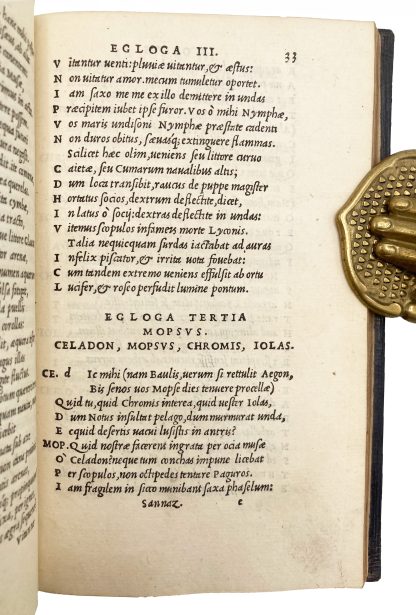 EGLOGA III. 33
Vitantur venti: pluuiæ uitantur, & æstus:
Non uitatur amor. mecum tumuletur oportet.
Iam saxo me me ex illo demittere in undas
Præcipitem iubet ipse furor. Vos ò mihi Nymphæ,
Vos maris undisoni Nymphæ præstate cadenti
Non duros obitus, sæuasq; extinguere flammas.
Scilicet hæc olim, ueniens seu littore curuo
Caietæ, seu Cumarum naualibus altis;
Dum loca transibit, raucus de puppe magister
Hortatus socios, dextrum deflectite, dicet,
In latus ò socij: dextras deflectite in undas:
Vitemus scopulos infameis morte Lyconis.
Talia nequicquam surdas iactabat ad auras
Infelix piscator, & irrita uota fouebat:
Cum tandem extremo ueniens effulsit ab ortu
Lucifer, & roseo perfudit lumine pontum.
EGLOGA TERTIA
MOPSVS.
CELADON, MOPSVS, CHROMIS, IOLAS.
CE. d Ic mihi (nam Baulis, uerum si rettulit Aegon,
Bis senos uos Mopse dies tenuere procellæ)
Quid tu, quid Chromis interea, quid uester Iolas,
Dum Notus insultat pelago, dum murmurat unda,
Ecquid desertis uacui lusistis in antris?
MOP. Quid nostræ facerent ingrata per ocia musæ
O Celadon? neque tum conchas impune licebat
Per scopulos, non octipedes tentare Paguros.
Iam fragilem in sicco munibant saxa phaselum:
Sannaz. e